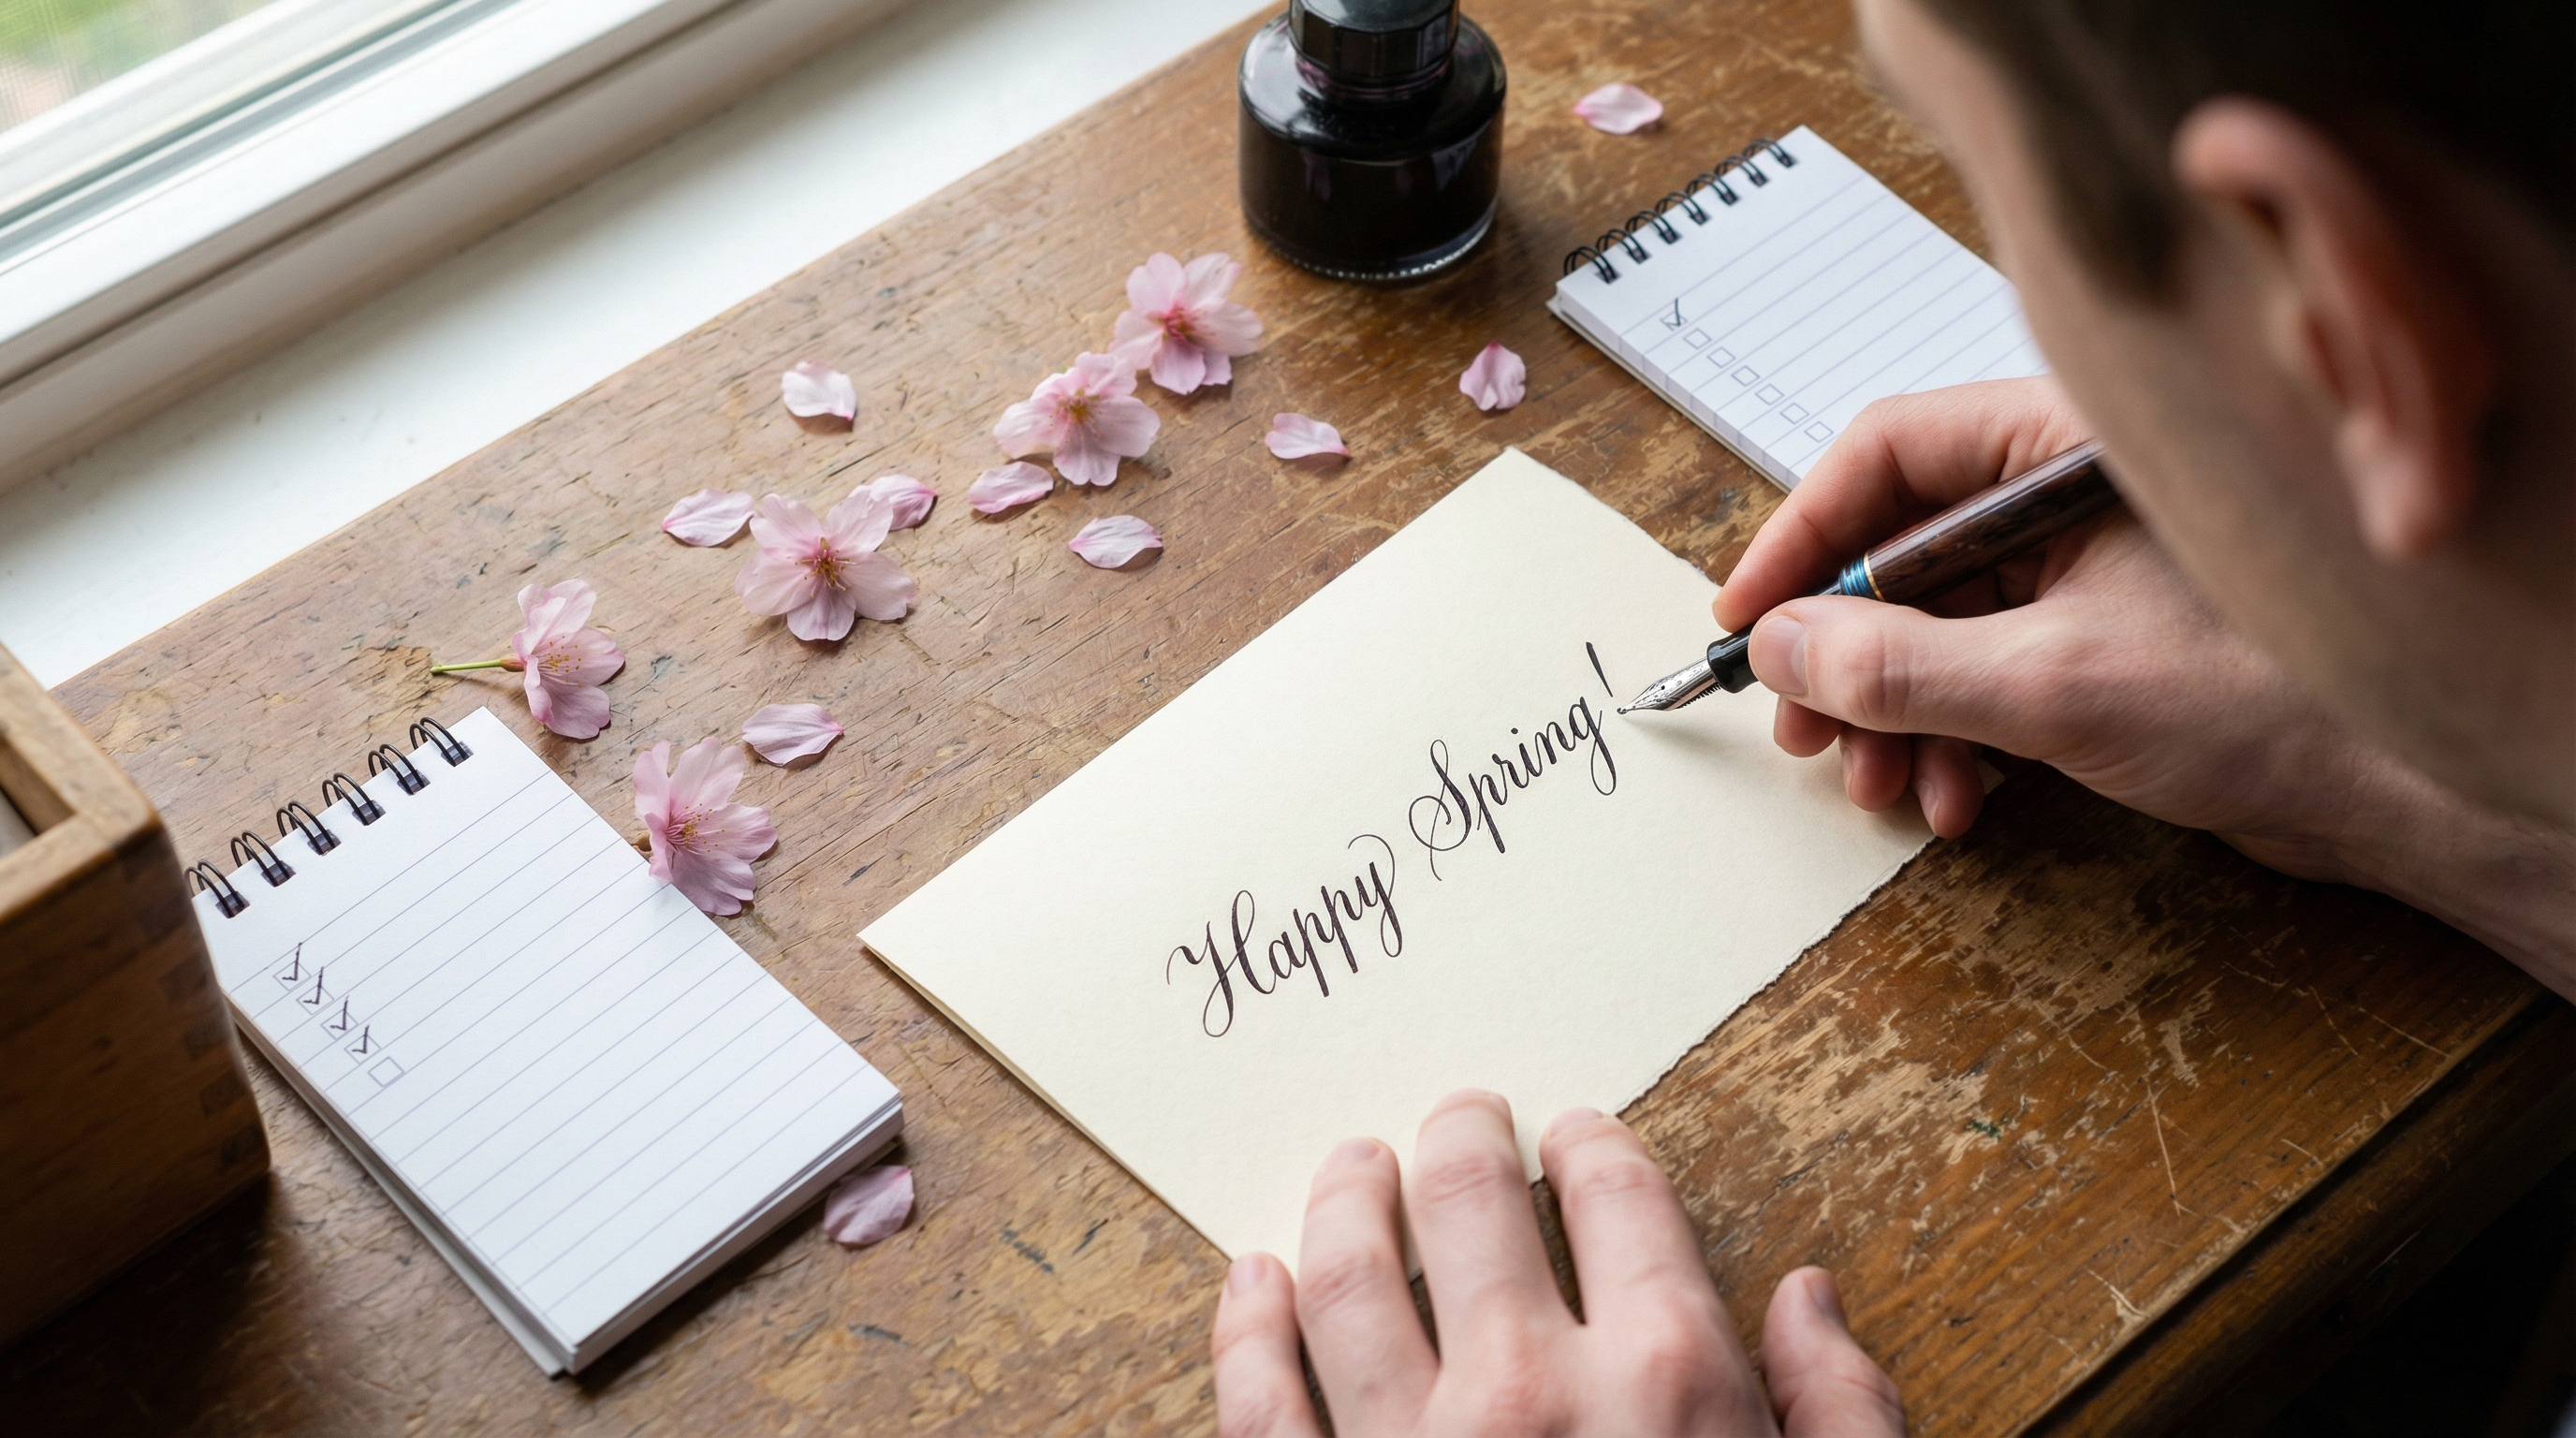 Happy Spring!